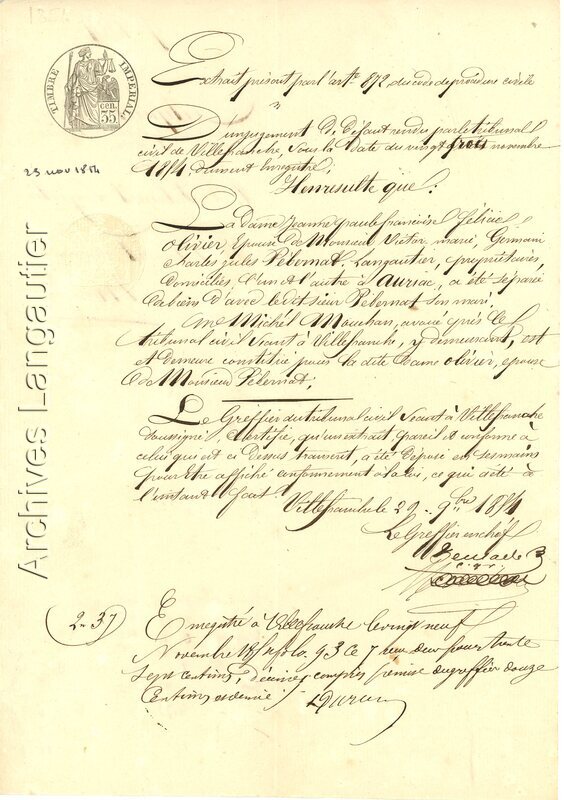 TIMBRE IMPERIAL
35 cen.
Extrait prescrit par l'art.e 872 du code de procédure civile
23 nov 1854
D'un jugement de Défaut rendu par le tribunal
civil de Villefranche sous la Date du vingt trois novembre
1854 dument Enregistré,
Il en résulte que:
La Dame Jeanne paule françoise félicie
olivier Epouse de Monsieur Victor, marie, Germain
charles jules Pebernat, Langautier, propriétaires,
Domiciliés, l'un et l'autre à auriac, a été séparée
de biens d'avec le dit sieur Pebernat son mari,
Me Michél Mouchan, avoué près le
tribunal civil séant à Villefranche, y demeurant, est
et Demeure constitué pour la dite Dame olivier, epouse
de Monsieur Pebernat;
Le Greffier du tribunal civil séant à Villefranche
soussigné, certifie, qu'un extrait pareil et conforme à
celui qui est ci Dessus transcrit, a été Deposé en ses mains
pour Etre affiché conformement à la loi, ce qui a été à
l'instant fait
Villefranche le 29 9bre 1854
Le Greffier en chef
2-37
Enregistré à Villefranche le vingt neuf
Novembre 1854 folo. 93 Ce 7 reçu deux francs trente
sept centimes, décimes compris remise du greffier douze
Centimes et demie
Archives Langautier